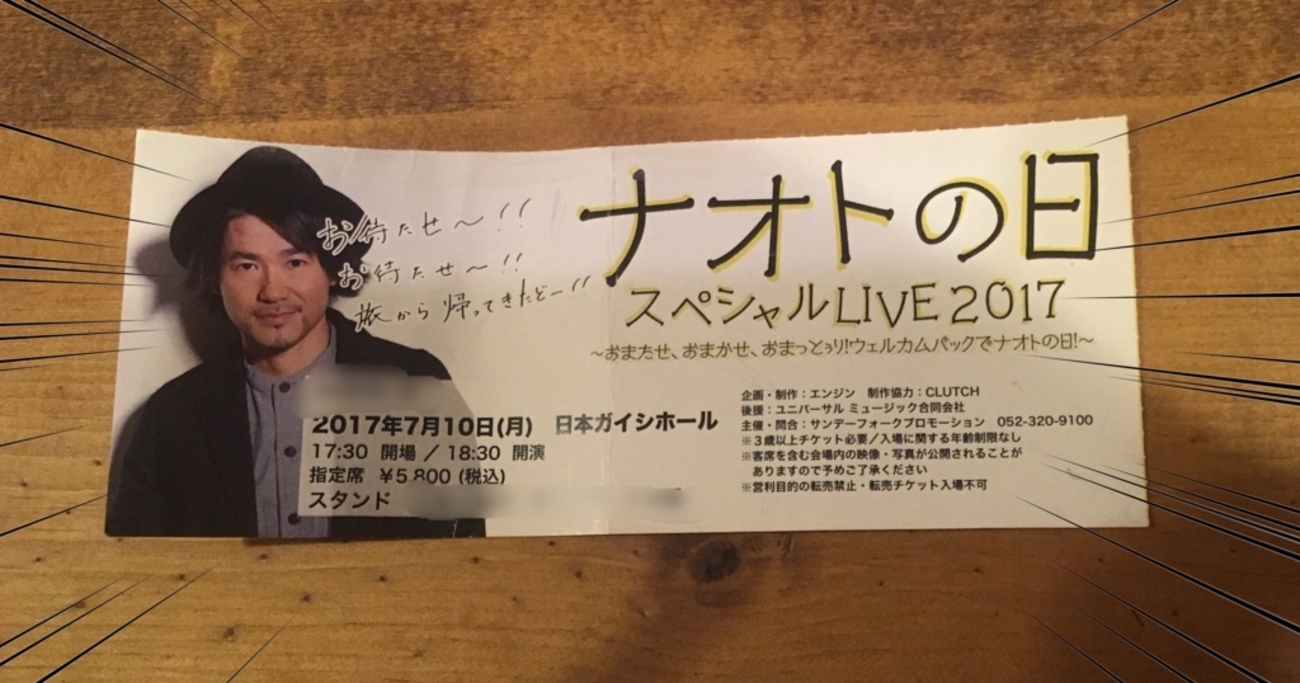 お待たせ〜!!
お待たせ〜!!
旅から帰ってきたどー!!
ナオトの日
スペシャルLIVE 2017
〜おまたせ、おまかせ、おまっとぅり!ウェルカムバックでナオトの日!〜
2017年7月10日(月) 日本ガイシホール
17:30 開場 / 18:30 開演
指定席 ¥5,800 (税込)
スタンド
企画・制作:エンジン 制作協力:CLUTCH
後援:ユニバーサル ミュージック合同会社
主催・問合:サンデーフォークプロモーション 052-320-9100
※3歳以上チケット必要/入場に関する年齢制限なし
※客席を含む会場内の映像・写真が公開されることが
ありますので予めご了承ください
※営利目的の転売禁止・転売チケット入場不可